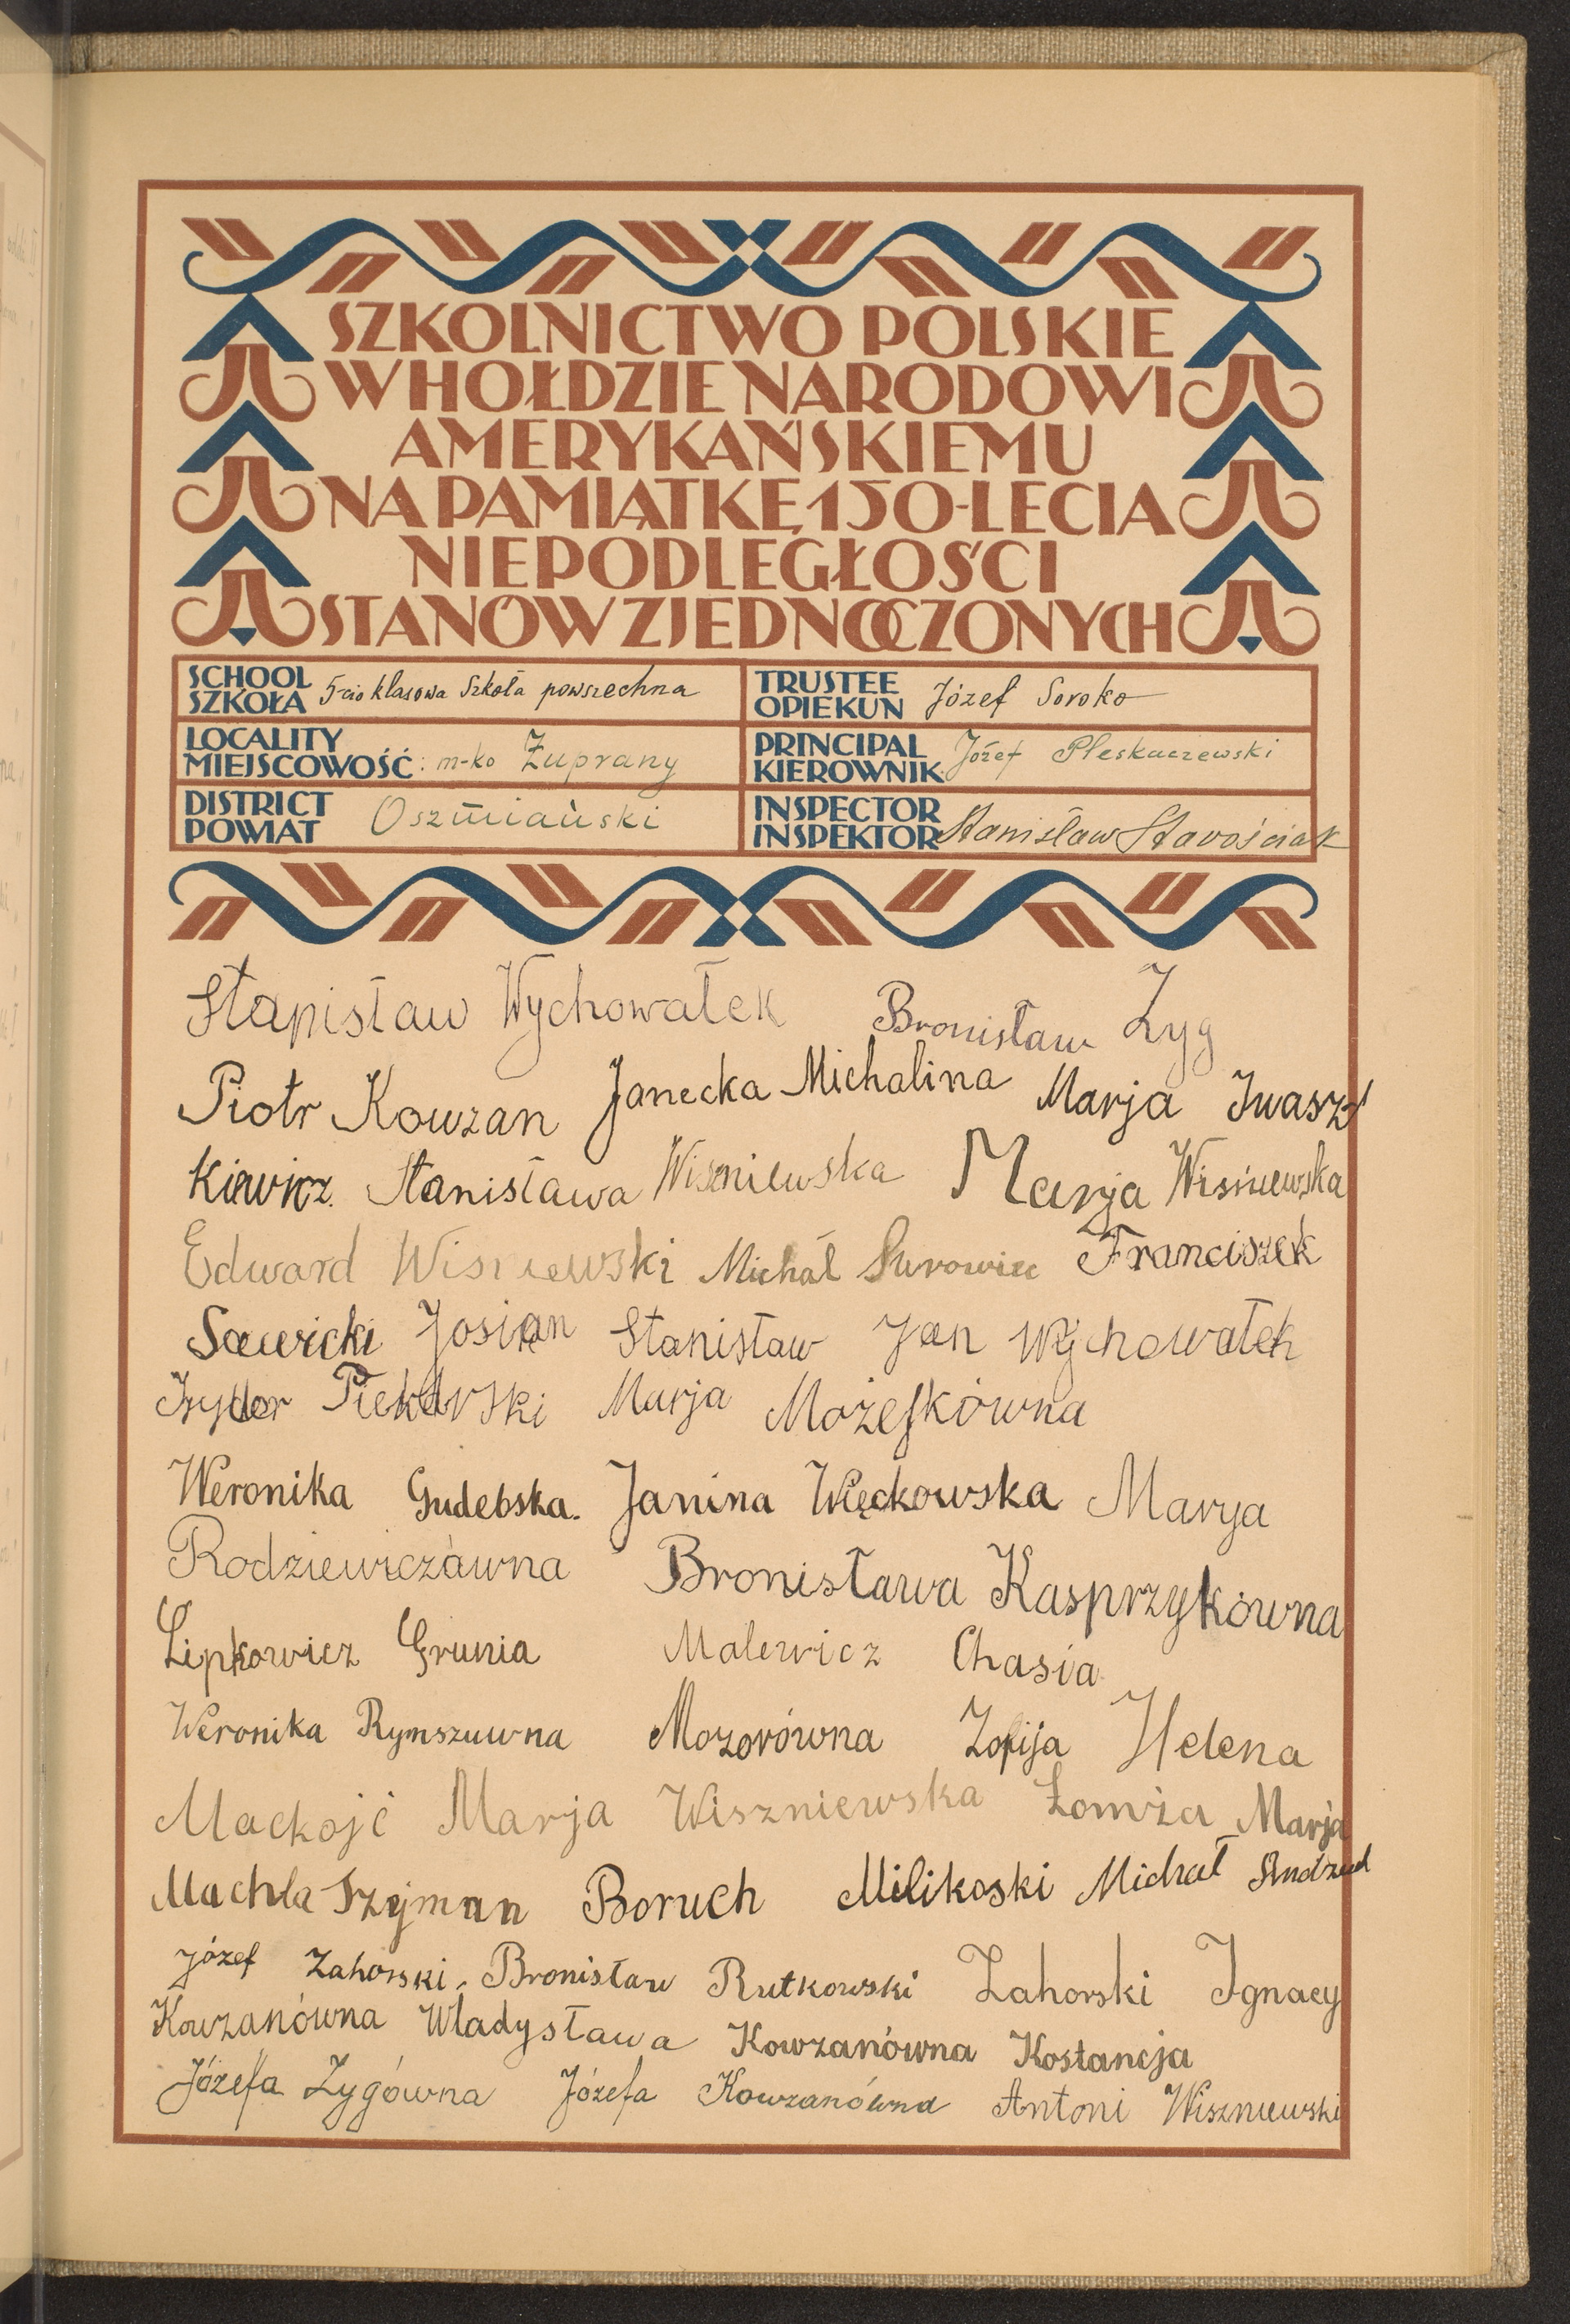 SZKOLNICTWO POLSKIE
W HOŁDZIE NARODOWI
AMERYKAŃSKIEMU
NA PAMIĄTKĘ 150-LECIA
NIEPODLEGŁOŚCI
STANÓW ZJEDNOCZONYCH
SCHOOL
SZKOŁA 5-cio klasowa Szkoła powszechna
TRUSTEE
OPIEKUN Józef Soroko
LOCALITY
MIEJSCOWOŚĆ: m-ko Żuprany
PRINCIPAL
KIEROWNIK Józef Pleskaczewski
DISTRICT
POWIAT Oszmiański
INSPECTOR
INSPEKTOR Stanisław Starościak
Stanisław Wychowałek Bronisław Zyg
Piotr Kowzan Janecka Michalina Marja Iwasz-
kiewicz. Stanisława Wiszniewska Marja Wiśniewska
Edward Wisniewski Michał Surowiec Franciszek
Sawicki Josian Stanisław Jan Wychowałek
Izydor Piekarski Marja Możejkówna
Weronika Gudebska. Janina Więckowska Marya
Rodziewiczówna Bronisława Kasprzykówna
Lipkowicz Grunia Malewicz Chasia
Weronika Rymszuwna Mozorówna Zofija Helena
Mackojć Marja Wiszniewska Łomża Marja
Machla Szejman Boruch Milikoski Michał
Józef Zahorski, Bronisław Rutkowski Zahorski Ignacy
Kowzanówna Władysława Kowzanówna Kostancja
Józefa Zygówna Józefa Kowzanówna Antoni Wiszniewski